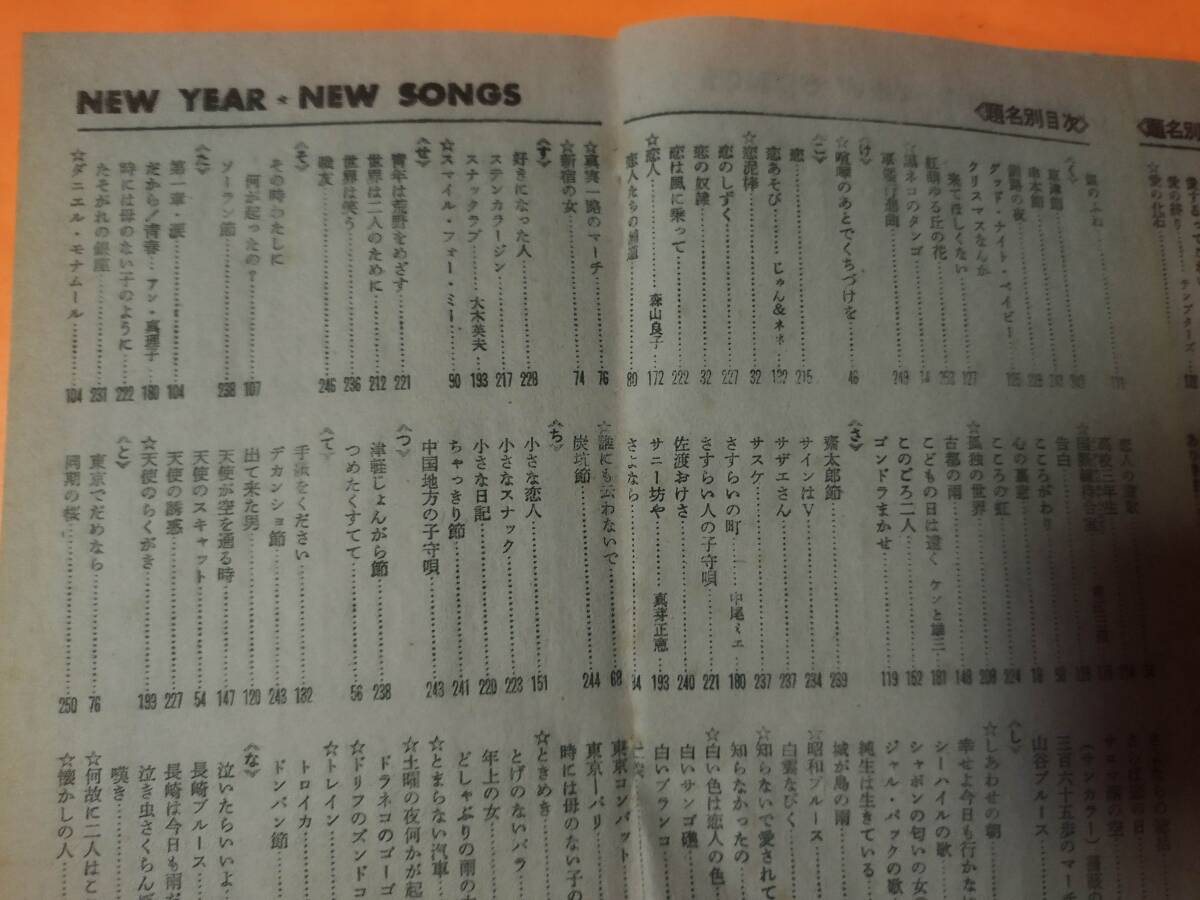 NEW YEAR★NEW SONGS
〈題名別目次〉
〈題名別
☆愛の化石
愛の終り……テンプターズ…
〈く〉
串本節
釧路の夜
グッド・ナイト・ベイビー
クリスマスなんか
来てほしくない……127
紅萌ゆる丘の花
☆黒ネコのタンゴ
〈け〉
☆喧嘩のあとでくちづけを……46
〈こ〉
恋……215
恋あそび……じゅん&ネネ
☆恋泥棒……32
恋のしずく……227
恋の奴隷……32
恋は風に乗って……222
☆恋人……森山良子……172
恋人たちの……80
☆真実一路のマーチ……76
☆新宿の女……74
〈す〉
好きになった人……228
ステンカラージン……217
スナックラブ……大木英夫……193
☆スマイル・フォー・ミー……90
〈せ〉
青年は荒野をめざす……221
世界は二人のために……212
世界は笑う……236
戦友……246
〈そ〉
その時わたしに
何が起ったの?……107
ソーラン節……238
〈た〉
第一章・涙……104
だから!青春…アン・真理子……180
時には母のない子のように……222
たそがれの銀座……231
☆ダニエル・モナムール……104
高校三年生
告白
こころがわり
心の裏窓
こころの虹……224
☆孤独の世界……208
古都の雨……148
こどもの日は遠く ケンと雄二……181
このごろ二人……152
ゴンドラまかせ……119
〈さ〉
斎太郎節……239
サインはV……234
サザエさん……237
サスケ……237
さすらいの町……中尾ミエ……180
さすらい人の子守唄……221
佐渡おけさ……240
サニー坊や……真芽正恵……193
さよなら……84
☆誰にも云わないで……68
炭坑節……244
〈ち〉
小さな恋人……151
小さなスナック……223
小さな日記……220
ちゃっきり節……241
中国地方の子守唄……243
〈つ〉
津軽じょんがら節……238
つめたくすてて……56
〈て〉
手紙をください……132
デカンショ節……243
出て来た男……120
天使が空を通る時……147
天使のスキャット……54
天使の誘惑……227
☆天使のらくがき……193
〈と〉
東京でだめなら……76
同期の桜……250
三百六十五歩のマーチ
山谷ブルース
〈し〉
☆しあわせの朝
幸せよ今日も行かな
シーハイルの歌
シャボンの匂いの女の
ジャル・パックの歌
純生は生きている
城が島の雨
☆昭和ブルース
白雲なびく
☆知らないで愛されて
知らなかったの
☆白い色は恋人の色
白いサンゴ礁
白いブランコ
東京コンバット
東京—パリ
時には母のない子の
☆ときめき
とげのないバラ
年上の女
どしゃぶりの雨の
☆とまらない汽車
☆土曜の夜何かが起
ドラネコのゴーゴ
☆ドリフのズンドコ
☆トレイン
トロイカ
ドンパン節
〈な〉
泣いたらいいよ
長崎ブルース
長崎は今日も雨だ
泣き虫さくらんぼ
嘆き
☆何故に二人はこ
☆懐かしの人